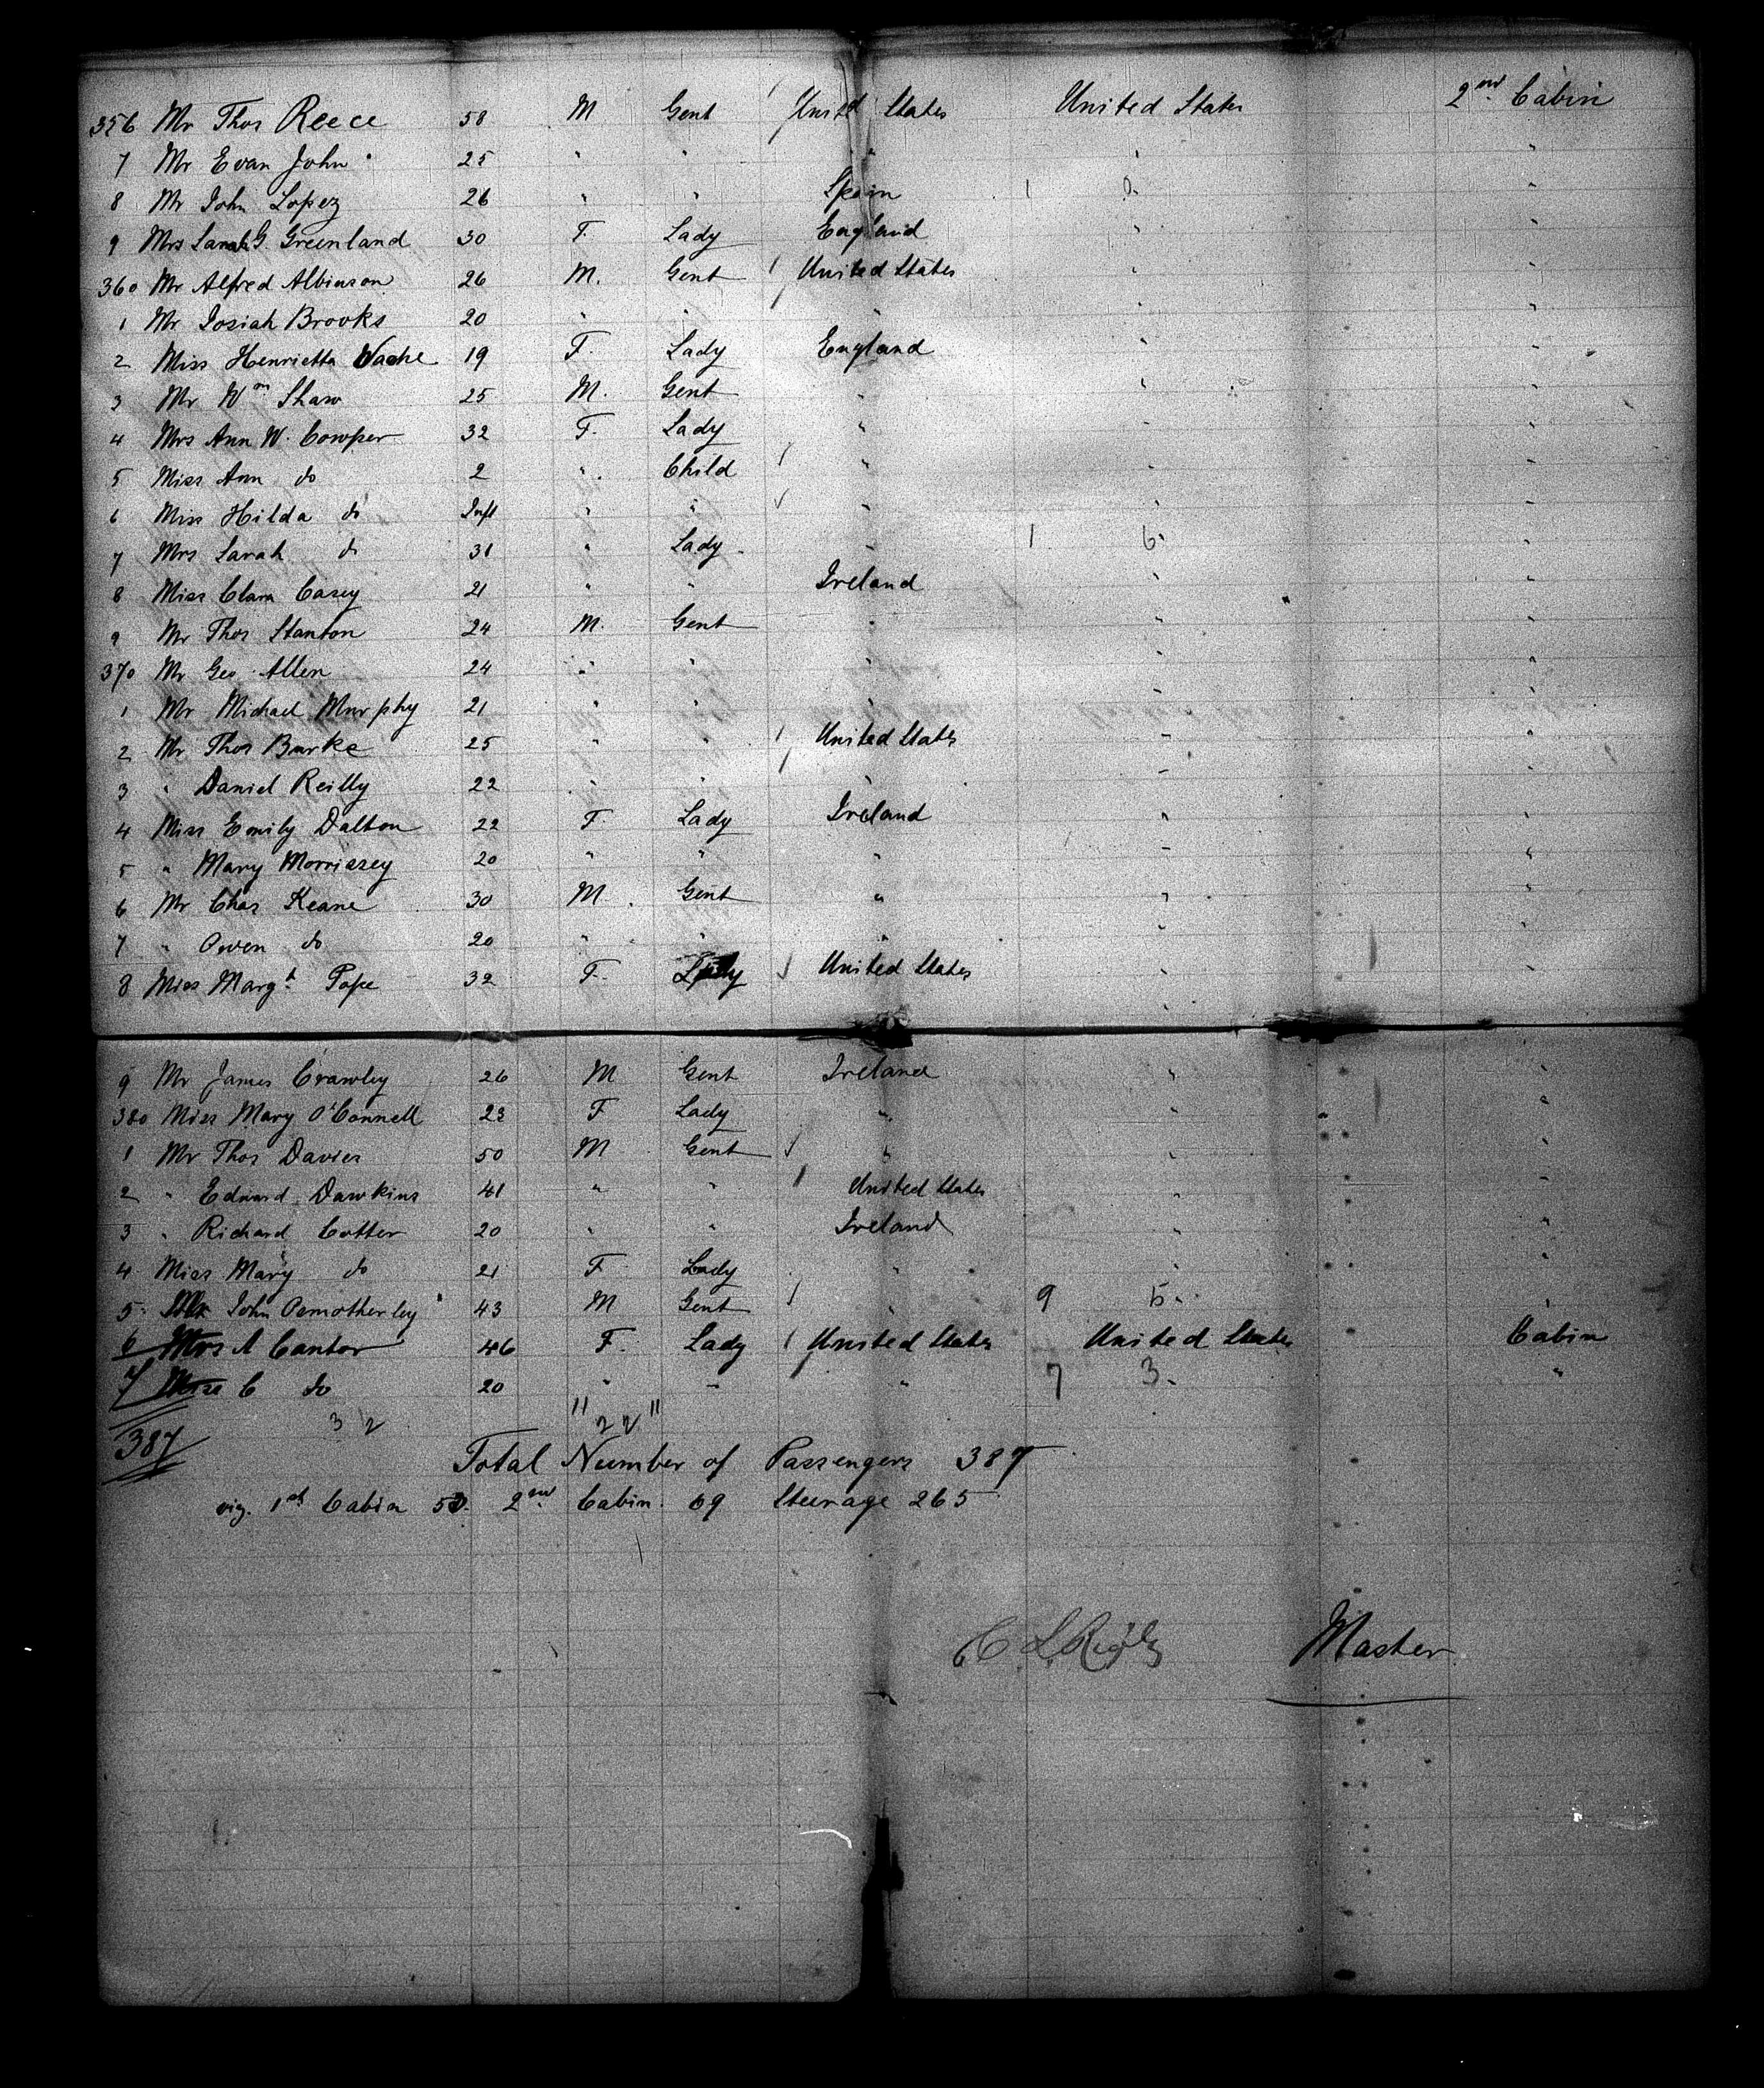 356 Mr Thos Reece 58 M Gent United States United States 2nd Cabin
7 Mr Evan John 25 " " " " "
8 Mr John Lopez 26 " " Spain 1 0 "
9 Mrs Sarah G. Greenland 30 F. Lady England " "
360 Mr Alfred Albinson 26 M. Gent United States " "
1 Mr Josiah Brooks 20 " " " " "
2 Miss Henrietta 19 F. Lady England " "
3 Mr Wm Shaw 25 M. Gent " " "
4 Mrs Ann W. Cowper 32 F. Lady " " "
5 Miss Ann do 2 " Child " " "
6 Miss Hilda do Inft " " " " "
7 Mrs Sarah do 31 " Lady " 1 6 "
8 Miss Clara Casey 21 " " Ireland " "
9 Mr Thos Stanton 24 M. Gent " " "
370 Mr Geo Allen 24 " " " " "
1 Mr Michael Murphy 21 " " " " "
2 Mr Thos Burke 25 " " United States " "
3 " Daniel Reilly 22 " " " " "
4 Miss Emily Dalton 22 F Lady Ireland " "
5 " Mary Morrissey 20 " " " " "
6 Mr Chas Keane 30 M Gent " " "
7 " Owen do 20 " " " " "
8 Miss Margt Pope 32 F. Lady United States " "
9 Mr James Crawley 26 M Gent Ireland " "
380 Miss Mary O'Connell 23 F Lady " " "
1 Mr Thos Davies 50 M Gent " " "
2 " Edward Dawkins 41 " " United States " "
3 " Richard Cotter 20 " " Ireland " "
4 Miss Mary do 21 F Lady " " "
5 Mr John Osmotherley 43 M Gent " 9 5 "
6 Mrs A Cantor 46 F. Lady United States United States Cabin
7 Miss C do 20 " " " 7 3 "
3 2 " 22 "
387
Total Number of Passengers 387
viz. 1st Cabin 53 2nd Cabin 69 Steerage 265
Master